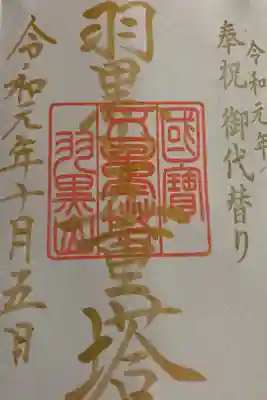 令和元年
奉祝 御代替り
羽黒山五重塔
國寶
五重塔
羽黒山
令和元年十月五日